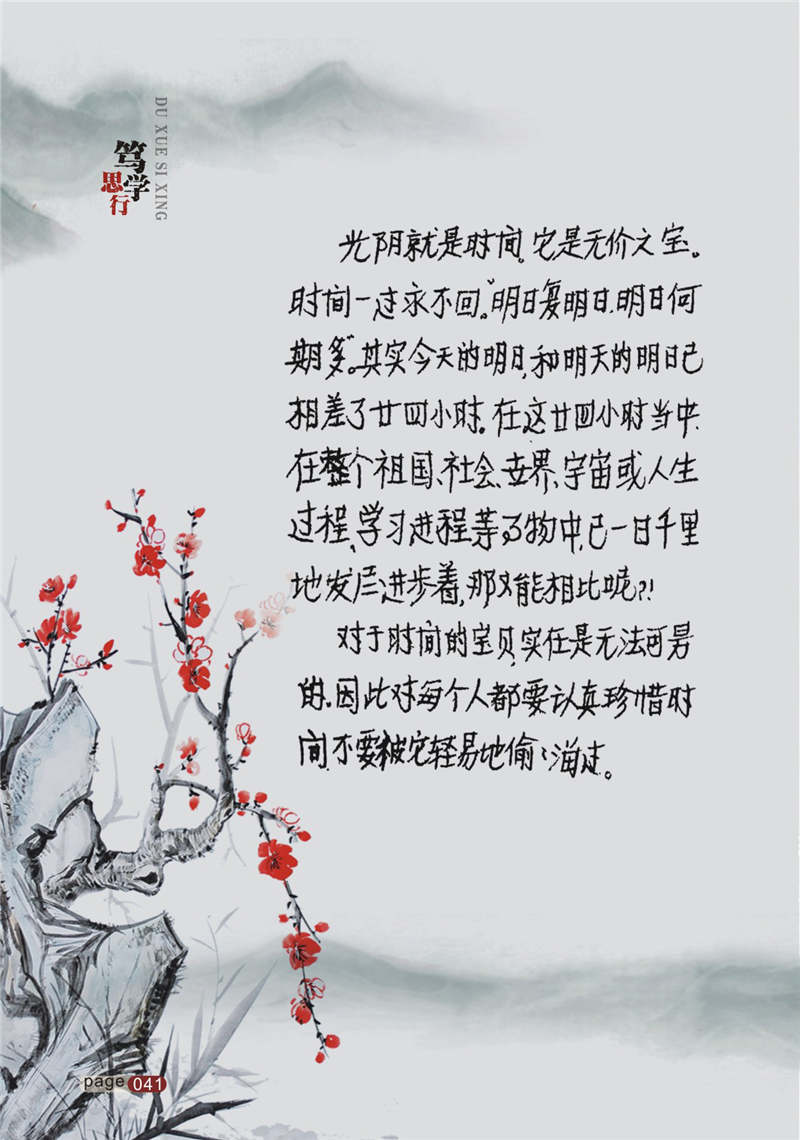 笃学思行
DU XUE SI XING
光阴就是时间。它是无价之宝。
时间一过永不回。“明日复明日,明日何
期多”。其实今天的明日,和明天的明日已
相差了廿四小时。在这廿四小时当中,
在整个祖国、社会、世界、宇宙或人生
过程、学习进程等事物中,已一日千里
地发展进步着,那又能相比呢?!
对于时间的宝贝,实在是无法可易
的。因此对每个人都要认真珍惜时
间,不要被它轻易地偷偷溜过。
page 041